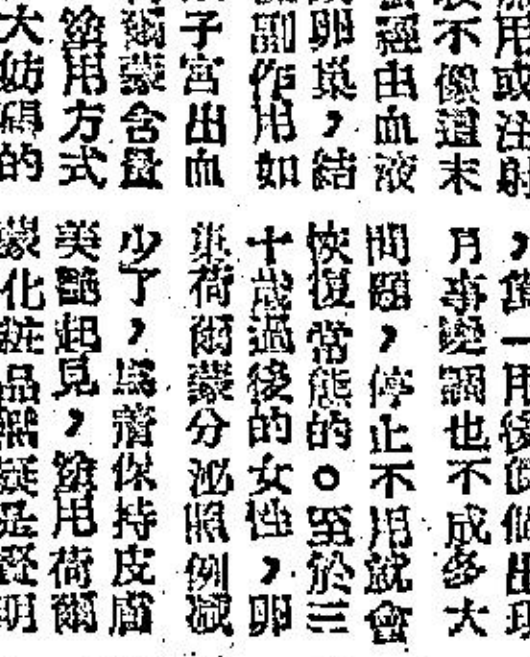 用或注射
不像還末
經由血液
卵巢，結
副作用如
子宮出血
爾蒙含量
塗用方式
大妨碍的
一用後
月事變調也不成多大
問題，停止不用就會
恢復常態的。至於三
十歲過後的女性，卵
巢荷爾蒙分泌照例减
少了，為着保持皮膚
美艷起見，塗用荷爾
蒙化粧品無疑是賢明